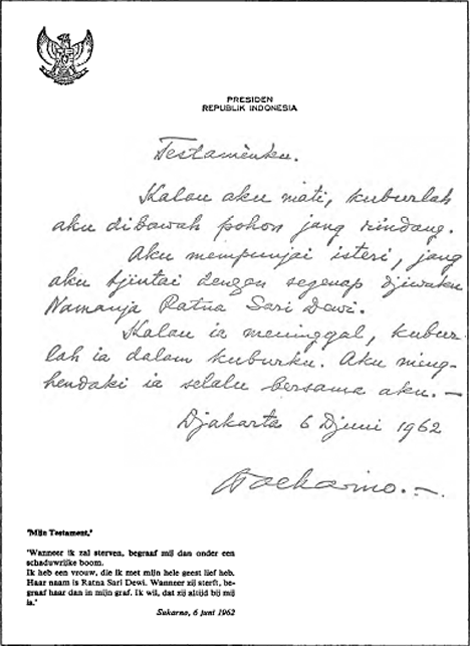 PRESIDEN
REPUBLIK INDONESIA
Testamenku.
Kalau aku mati, kuburlah
aku dibawah pohon jang rindang.
Aku mempunjai isteri, jang
aku tjintai dengan segenap djiwaku
Namanja Ratna Sari Dewi.
Kalau ia meninggal, kubur-
lah ia dalam kuburku. Aku meng-
hendaki ia selalu bersama aku. –
Djakarta 6 Djuni 1962
Soekarno. –
'Mijn Testament,'
'Wanneer ik zal sterven, begraaf mij dan onder een
schaduwrijke boom.
Ik heb een vrouw, die ik met mijn hele geest lief heb.
Haar naam is Ratna Sari Dewi. Wanneer zij sterft, be-
graaf haar dan in mijn graf. Ik wil, dat zij altijd bij mij
is.'
Sukarno, 6 juni 1962